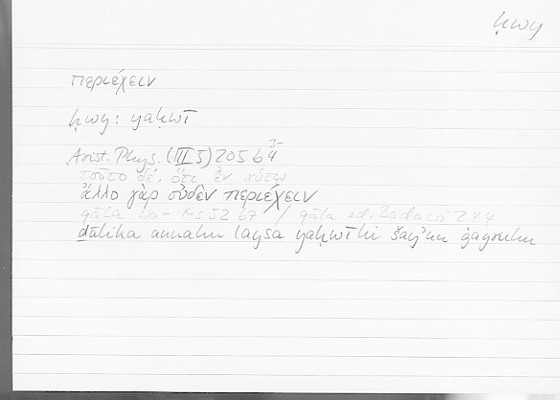 ḥwy
περιέχειν
ḥwy: yaḥwī
Arist. Phys. (III 5) 205 b 3-4
τοῦτο δέ, ὅτι ἐν αὑτῷ
ἄλλο γὰρ οὐδὲν περιέχειν
qāla Ms 52 b7 / qāla ed. Badawī 244
ḏālika annahu laysa yaḥwīhi šay'un ġayruhu